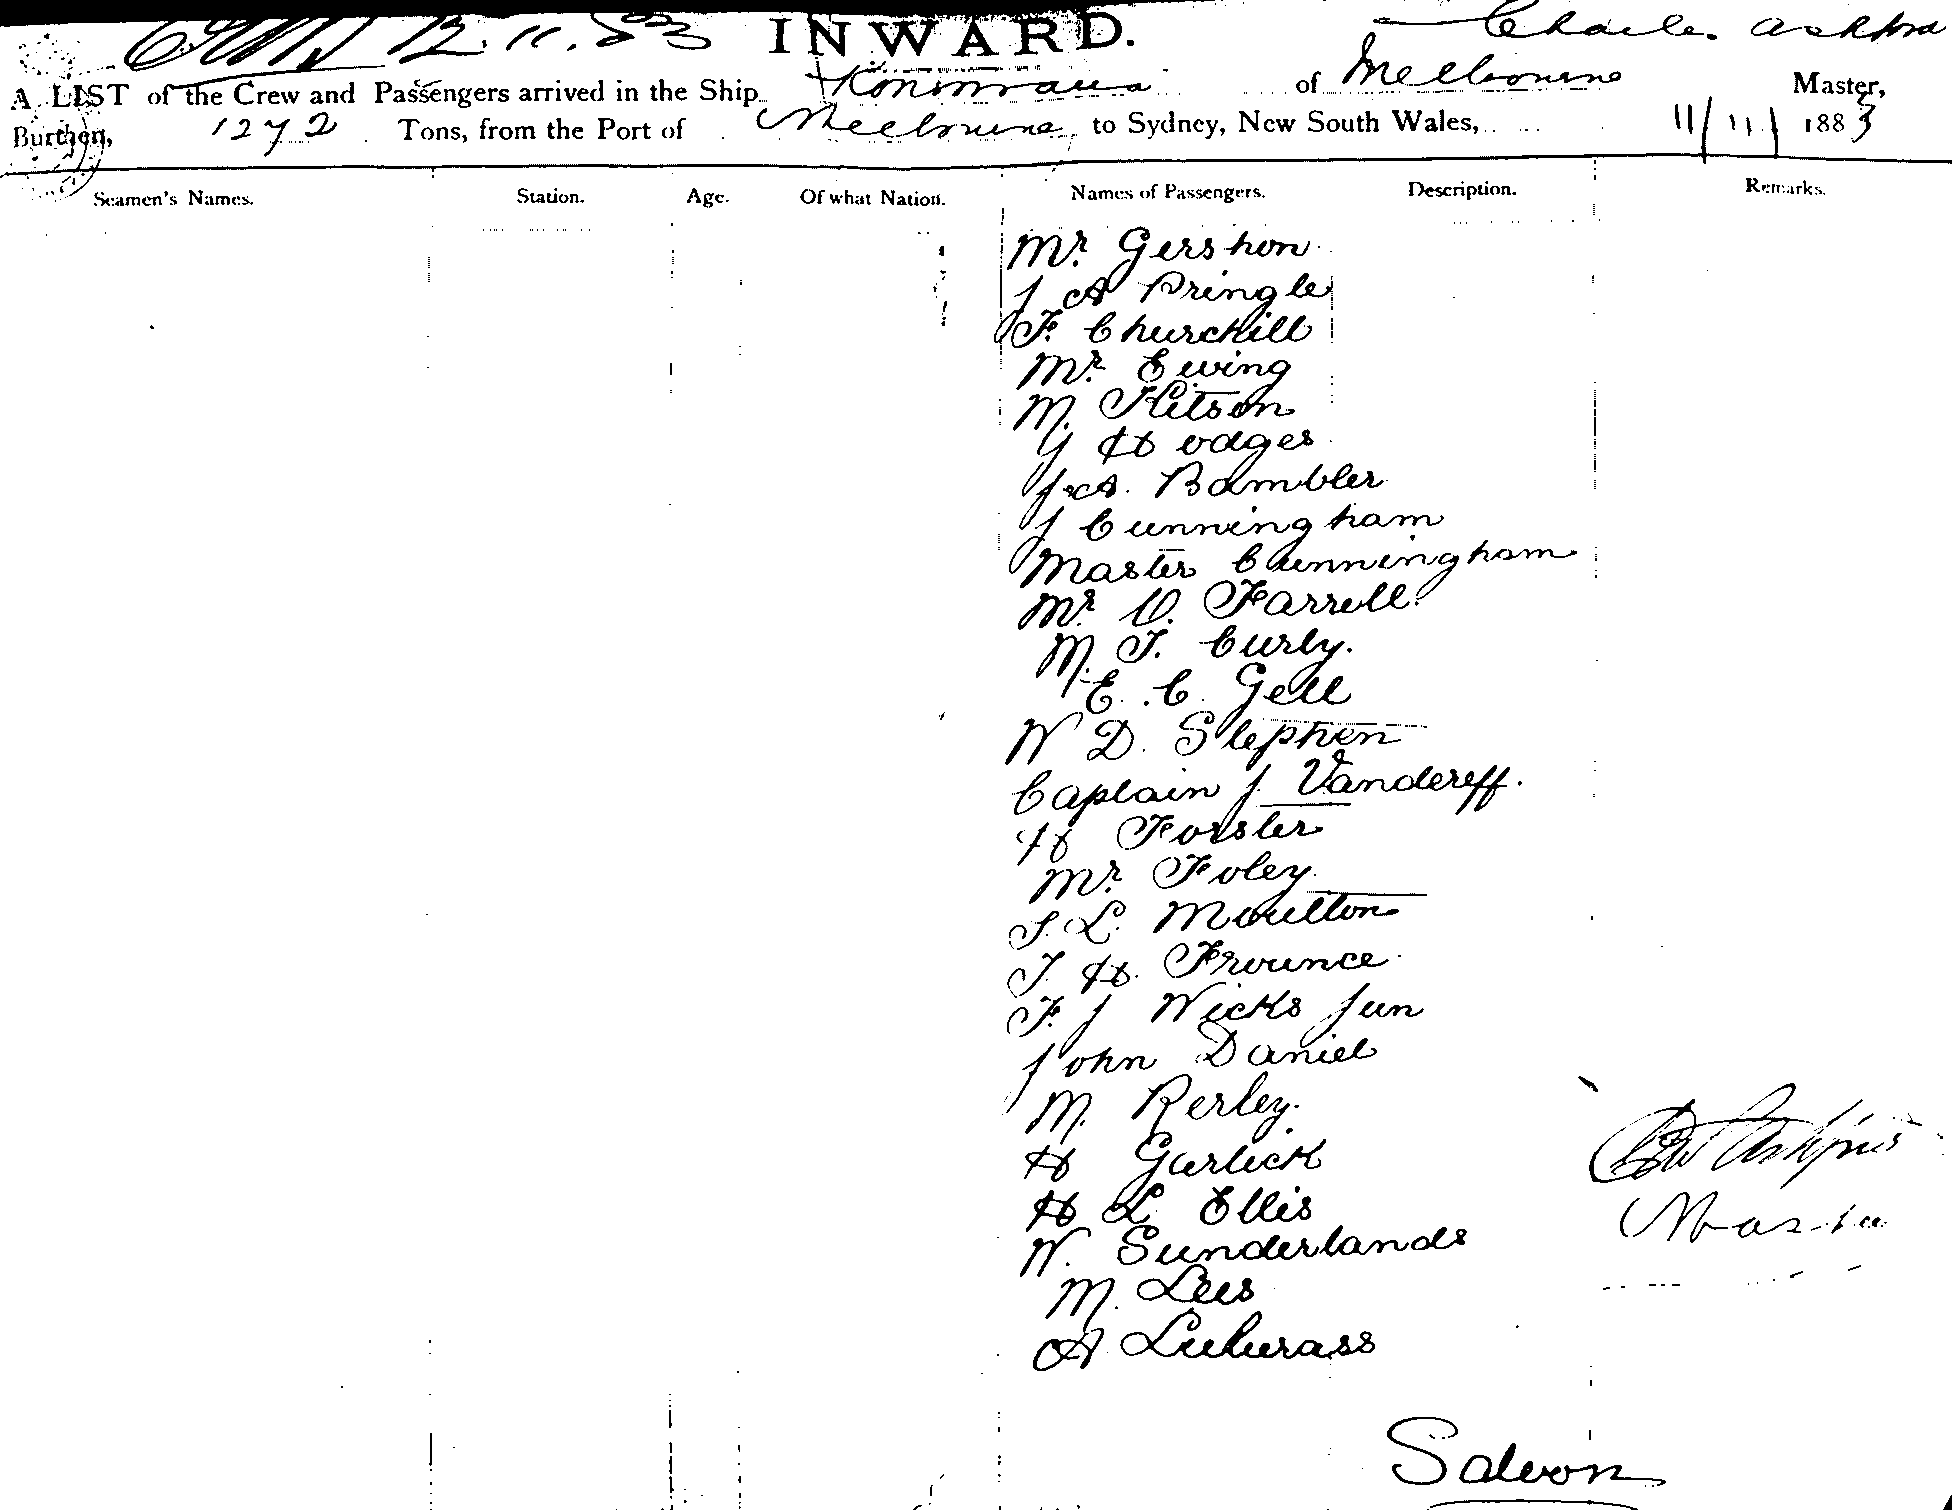 12.11.83 INWARD. Charles Ashford
A LIST of the Crew and Passengers arrived in the Ship of Melbourne Master,
Burthen, 1272 Tons, from the Port of Melbourne to Sydney, New South Wales, 11/11/1883
Seamen's Names. Station. Age. Of what Nation. Names of Passengers. Description. Remarks.
Mr. Gershon
J A Pringle
F. Churchill
Mr. Ewing
M. Kitson
G Hodges
J A. Bambler
J Cunningham
Master Cunningham
Mr. O. Farrell.
M. T. Curly.
E. C. Gell
W D. Stephen
Captain J. Vandereff.
H Forster
Mr. Foley
S. L. Moulton
T. H. Frounce
F. J Wicks Jun
John Daniel
M. Rerley.
H Garlick
H L Ellis
W. Sunderlands
M. Lees
A
Master
Saloon